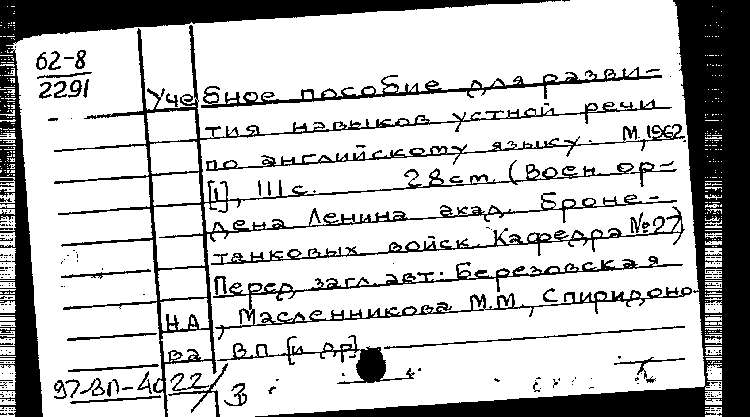 62-8
2291
Учебное пособие для разви-
тия навыков устной речи
по английскому языку. М, 1962.
[1], 111 с. 28 cm. (Воен. ор-
дена Ленина акад. Броне-
танковых войск. Кафедра №27)
Перед загл. авт: Березовская
Н.А, Масленникова М.М., Спиридоно-
ва В.П [и др].
97-ВП-4022/3